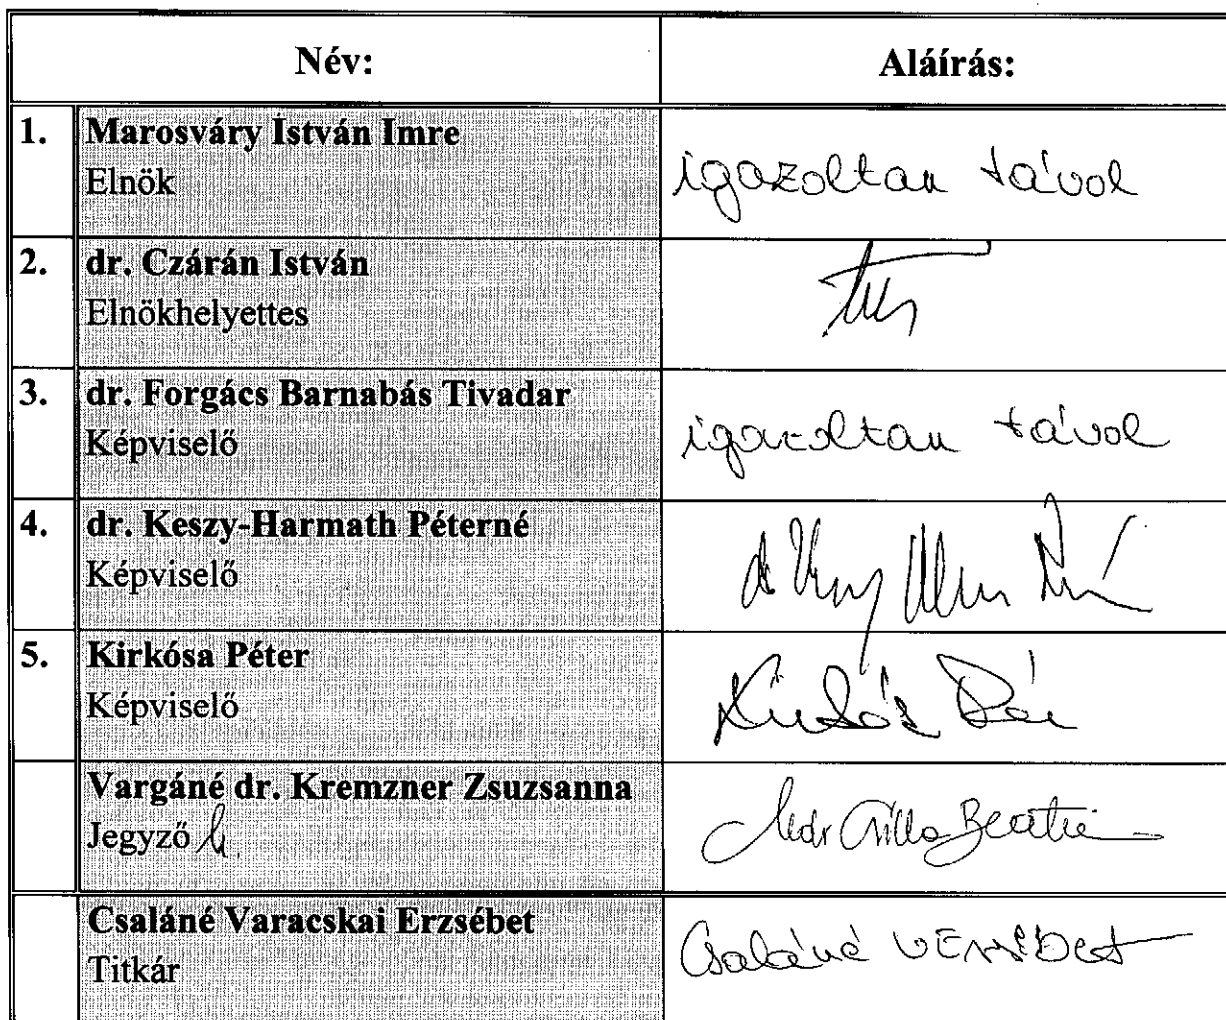 Név: Aláírás:
1. Marosváry István Imre
Elnök
igazoltan távol
2. dr. Czárán István
Elnökhelyettes
3. dr. Forgács Barnabás Tivadar
Képviselő
igazoltan távol
4. dr. Keszy-Harmath Péterné
Képviselő
5. Kirkósa Péter
Képviselő
Vargáné dr. Kremzner Zsuzsanna
Jegyző
Csaláné Varacskai Erzsébet
Titkár
Csaláné V Erzsébet